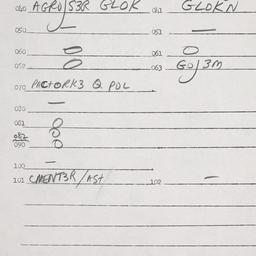 040 AGRO/S3R GLOK 041 GLOK'N
050 — 051 —
060 0 061 0
0 063 GOJ3M
070 PACTORK3 Q POL
—
081 8
082
090 0
100 —
101 CMENT3R/AST 102 —